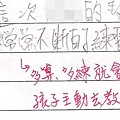 這次 的
常常不斷的練
↳多算、多練就會
孩子主動去教